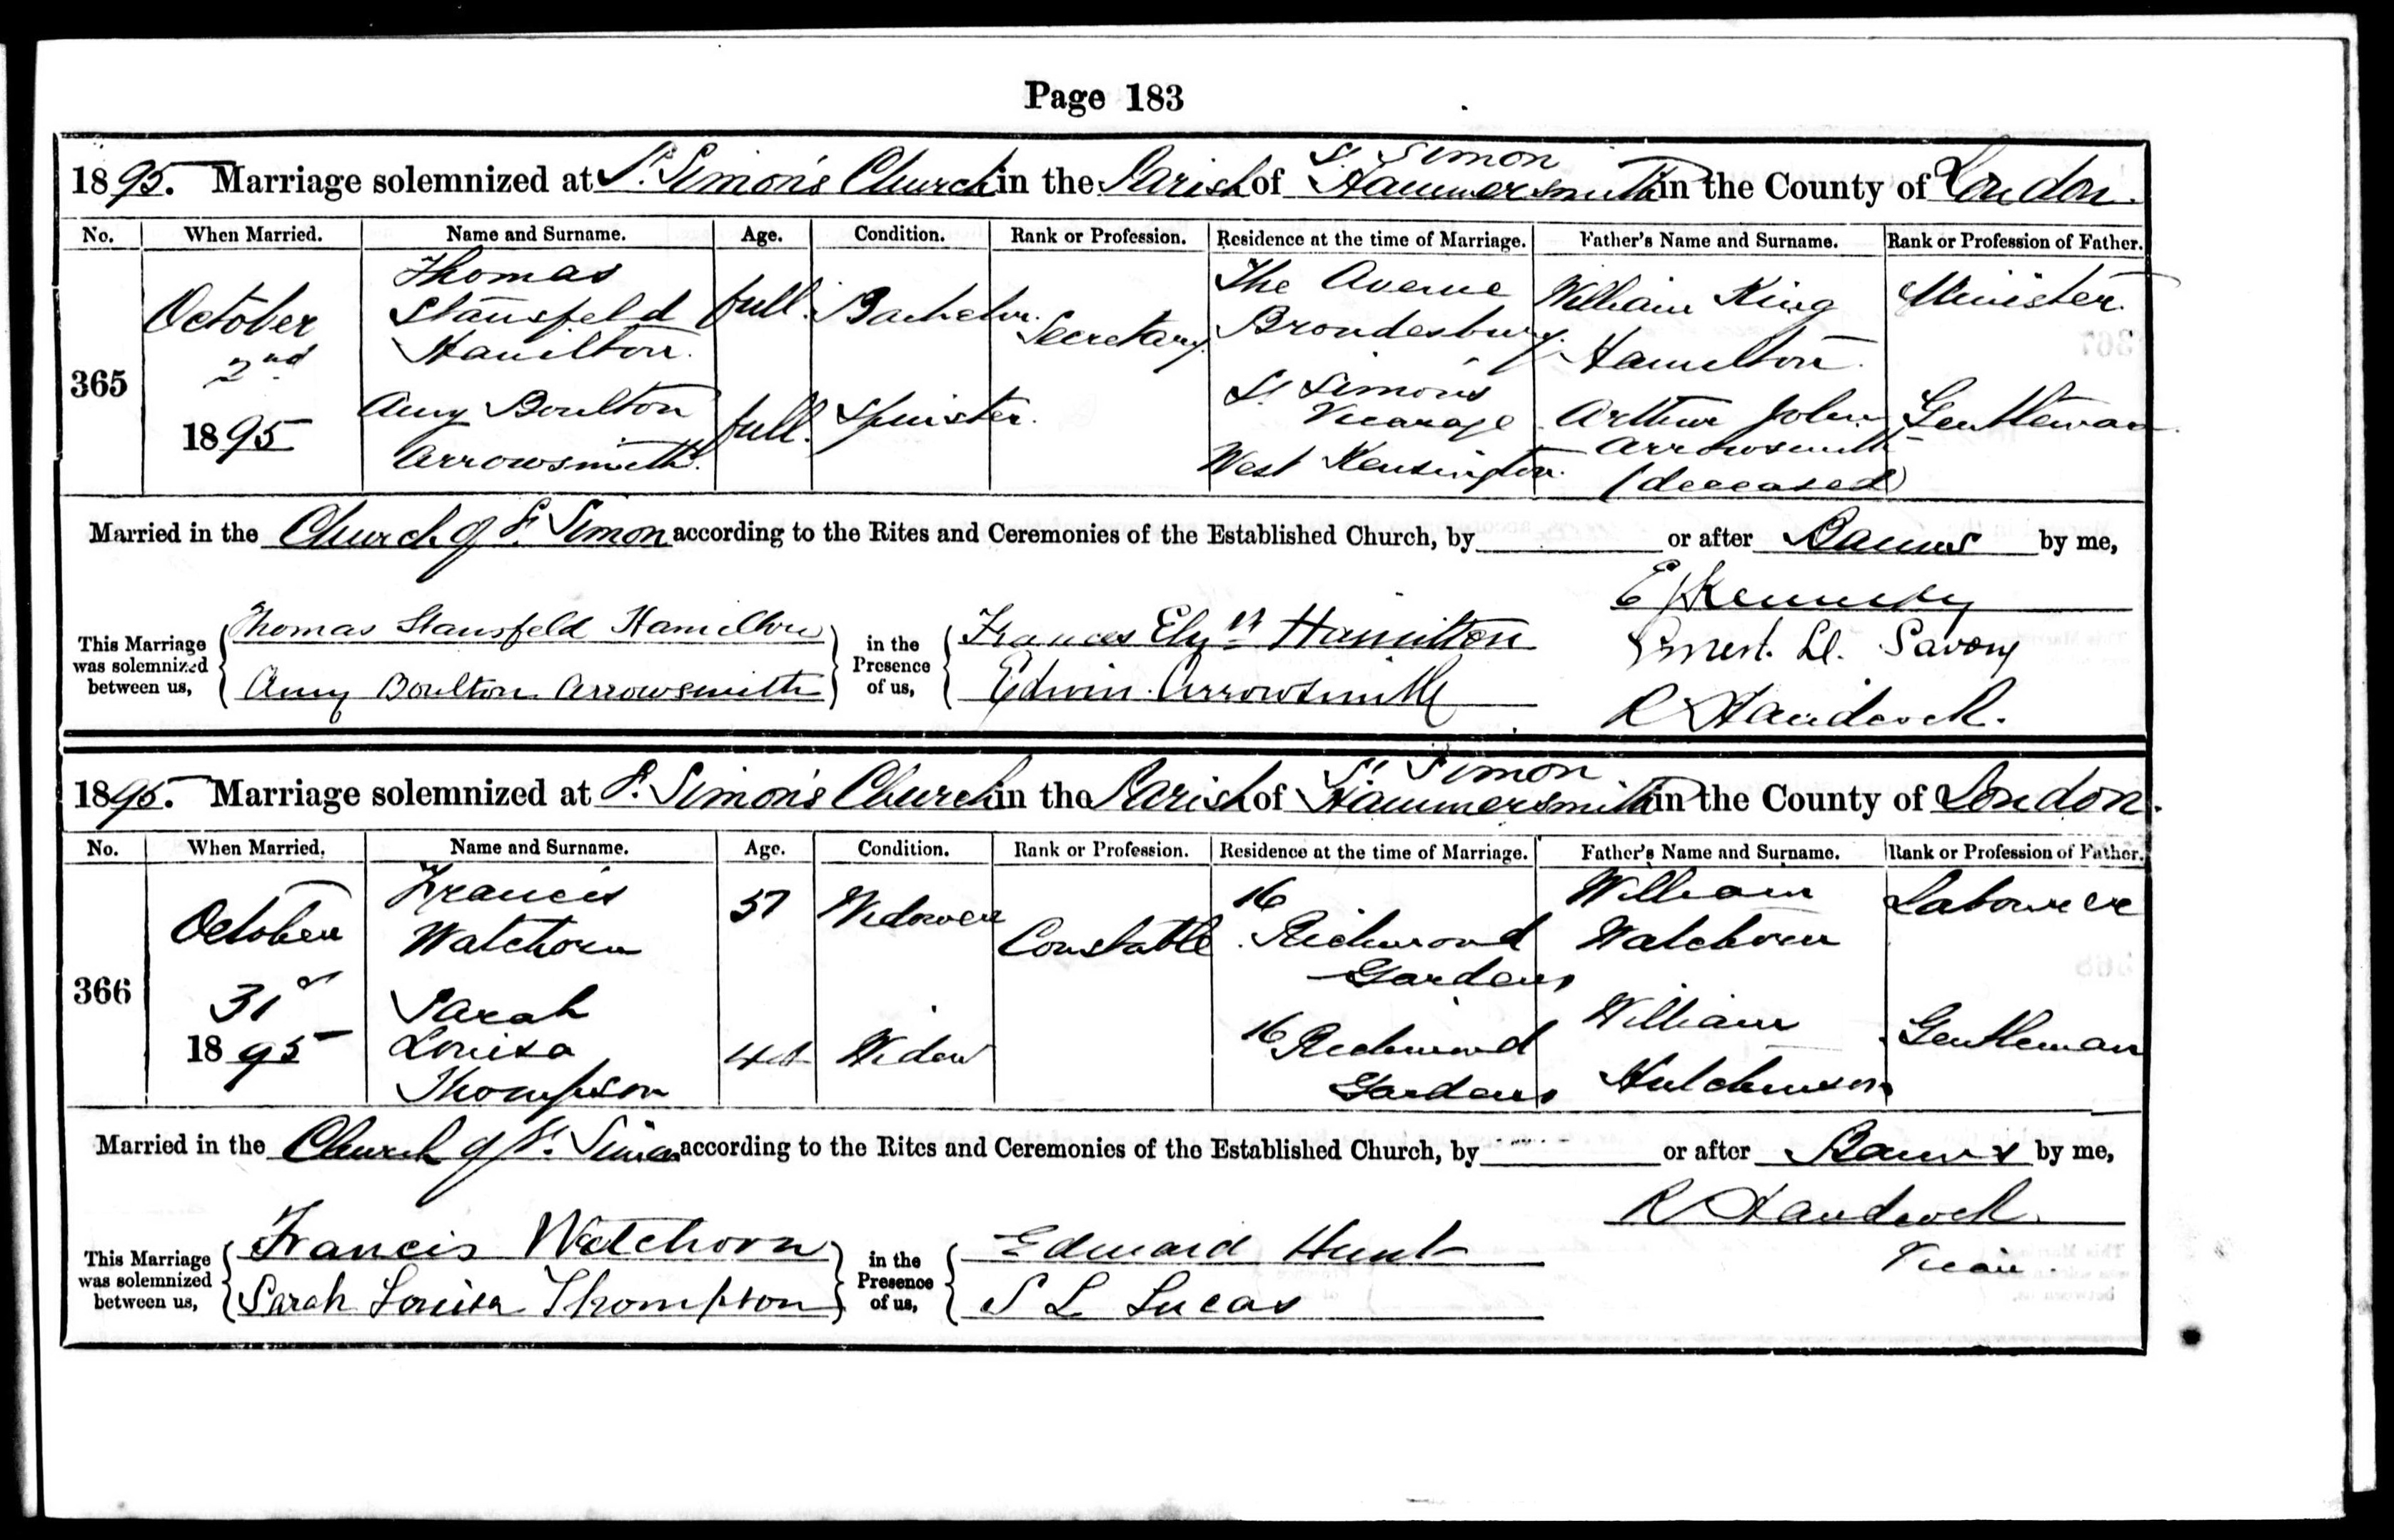 Page 183
1895. Marriage solemnized at St. Simon's Church in the Parish of St. Simon Hammersmith in the County of London.
No. When Married. Name and Surname. Age. Condition. Rank or Profession. Residence at the time of Marriage. Father's Name and Surname. Rank or Profession of Father.
365
October
2nd
1895
Thomas
Stansfeld
Hamilton.
full.
Bachelor.
Secretary.
The Avenue
Brondesbury.
William King
Hamilton.
Minister.
Amy Boulton
Arrowsmith.
full.
Spinster.
St Simon's
Vicarage
West Kensington.
Arthur John
Arrowsmith
(deceased)
Gentleman.
Married in the Church of St. Simon according to the Rites and Ceremonies of the Established Church, by or after Banns by me,
E J Kennedy
This Marriage was solemnized between us,
Thomas Stansfeld Hamilton
Amy Boulton Arrowsmith
in the Presence of us,
Frances Elizth Hamilton
Edwin Arrowsmith
Ernest Ll. Savory
R Handcock.
1895. Marriage solemnized at St. Simon's Church in the Parish of St. Simon Hammersmith in the County of London.
No. When Married. Name and Surname. Age. Condition. Rank or Profession. Residence at the time of Marriage. Father's Name and Surname. Rank or Profession of Father.
366
October
31st
1895
Francis
Watchorn
Widower
Constable
16
Richmond
Gardens
William
Watchorn
Labourer
Sarah
Louisa
Thompson
Widow
16 Richmond
Gardens
William
Hutchinson
Gentleman
Married in the Church of St. Simon according to the Rites and Ceremonies of the Established Church, by or after Banns by me,
R Handcock.
Vicar.
This Marriage was solemnized between us,
Francis Watchorn
Sarah Louisa Thompson
in the Presence of us,
Edward Hunt
S L Lucas